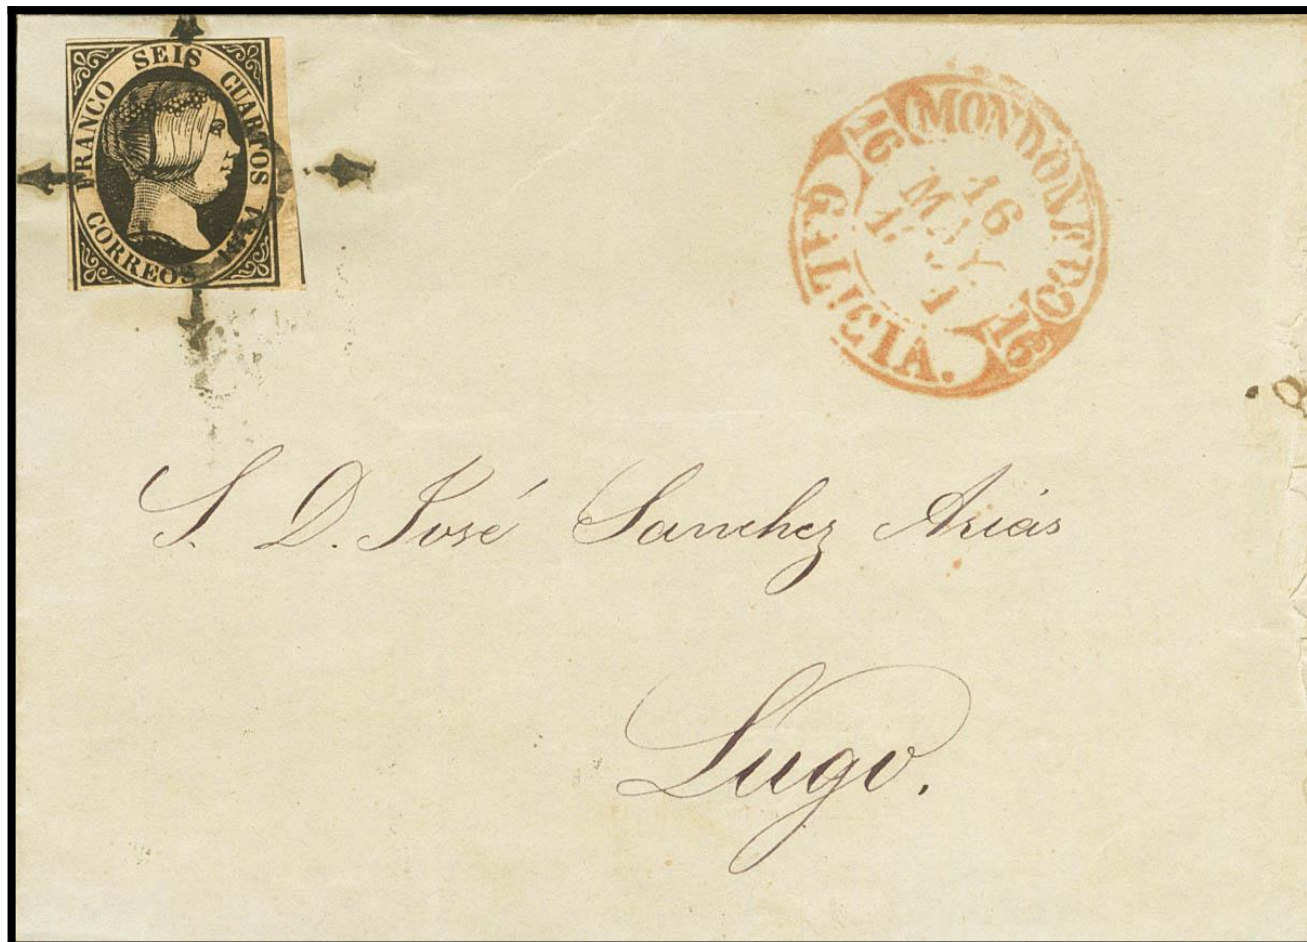 FRANCO SEIS CUARTOS
CORREOS 1851
MONDOÑEDO
16
16
16
MAY
GALICIA.
S. D. José Sanchez Arias
Lugo.